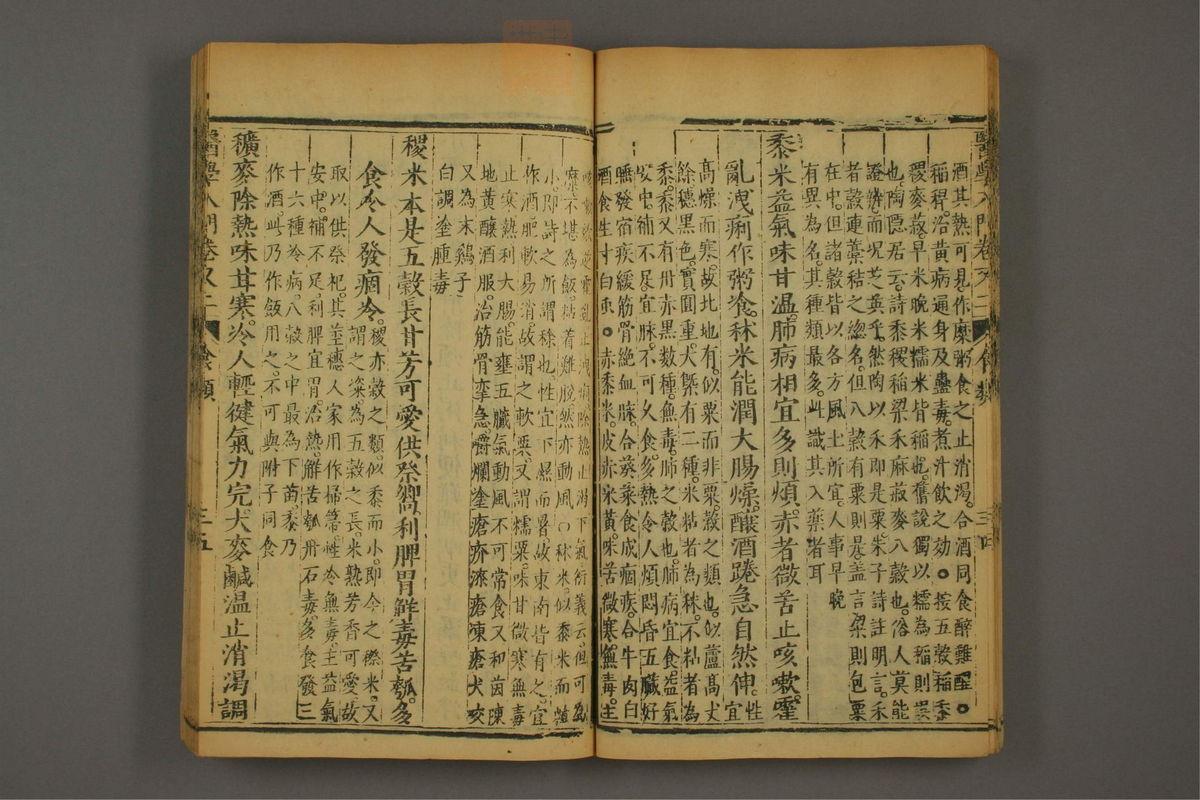 醫學入門卷之二 食類 三四
酒其熱可見作糜粥食之止消渴。合酒同食醉難醒。○
稻稈。治黃病通身及蠱毒。煮汁飲之効。○按五穀稻黍
稷麥菽早米晚米糯米皆稻也。舊說獨以糯為稻則誤
也。陶隱居云。詩黍稷稻粱禾麻菽麥八穀也。俗人莫能
證辨而况芝英乎。然陶以禾即是粟。朱子詩註明言。禾
者穀連藁秸之總名。但八穀有粟則是。盖言粱則包粟
在中。但諸穀皆以各方風土所宜。人事早晚
有異為名。其種類最多。此識其入藥者耳
黍米益氣味甘溫。肺病相宜多則煩。赤者微苦止咳嗽。霍
亂洩痢作粥飧。秫米能潤大腸燥。釀酒蜷急自然伸。性宜
高燥而寒。故北地有。似粟而非粟。穀之類也。似蘆高丈
餘穗黑色。實圓重。大槩有二種。米粘者為秫。不粘者為
黍。黍又有丹赤黑數種。無毒。肺之穀也。肺病宜食。益氣
安中。補不足。宜脉。不可久食。多熱令人煩悶昏五臟好
睡發宿疾緩筋骨絕血脉。合葵菜食成痼疾。合牛肉白
酒食生寸白虫。○赤黍米。皮赤米黃。味苦微寒無毒。主
氣衍義云。但可為
糜不堪為飯。粘着難脫然亦動風○秫米。似黍米而顆
小。即詩之所謂稌也。性宜下濕而暑。故東南皆有之。宜
作酒肥軟易消。故謂之軟粟。又謂糯粟。味甘微寒無毒
止寒熱利大腸。能壅五臟氣動風不可常食又和茵蔯
地黃釀酒服。治筋骨攣急。嚼爛塗瘡疥漆瘡凍瘡犬咬
又為末鷄子
白調塗腫毒
稷米本是五穀長甘芳可愛供祭饗。利脾胃解毒苦瓠。多
食令人發痼冷。稷亦穀之類。似黍而小。即今之穄米。又
謂之粢。為五穀之長。米熟芳香可愛。故
取以供祭祀。其莖穗人家用作掃箒。性冷無毒。主益氣
安中。補不足。利脾宜胃。治熱。解苦瓠丹石毒。多食發三
十六種冷病。八穀之中最為下苗。黍乃
作酒。此乃作飯用之。不可與附子同食
穬麥除熱味甘寒。冷人輕健氣力完。大麥鹹溫止消渴調
醫學入門卷之二 食類 三五